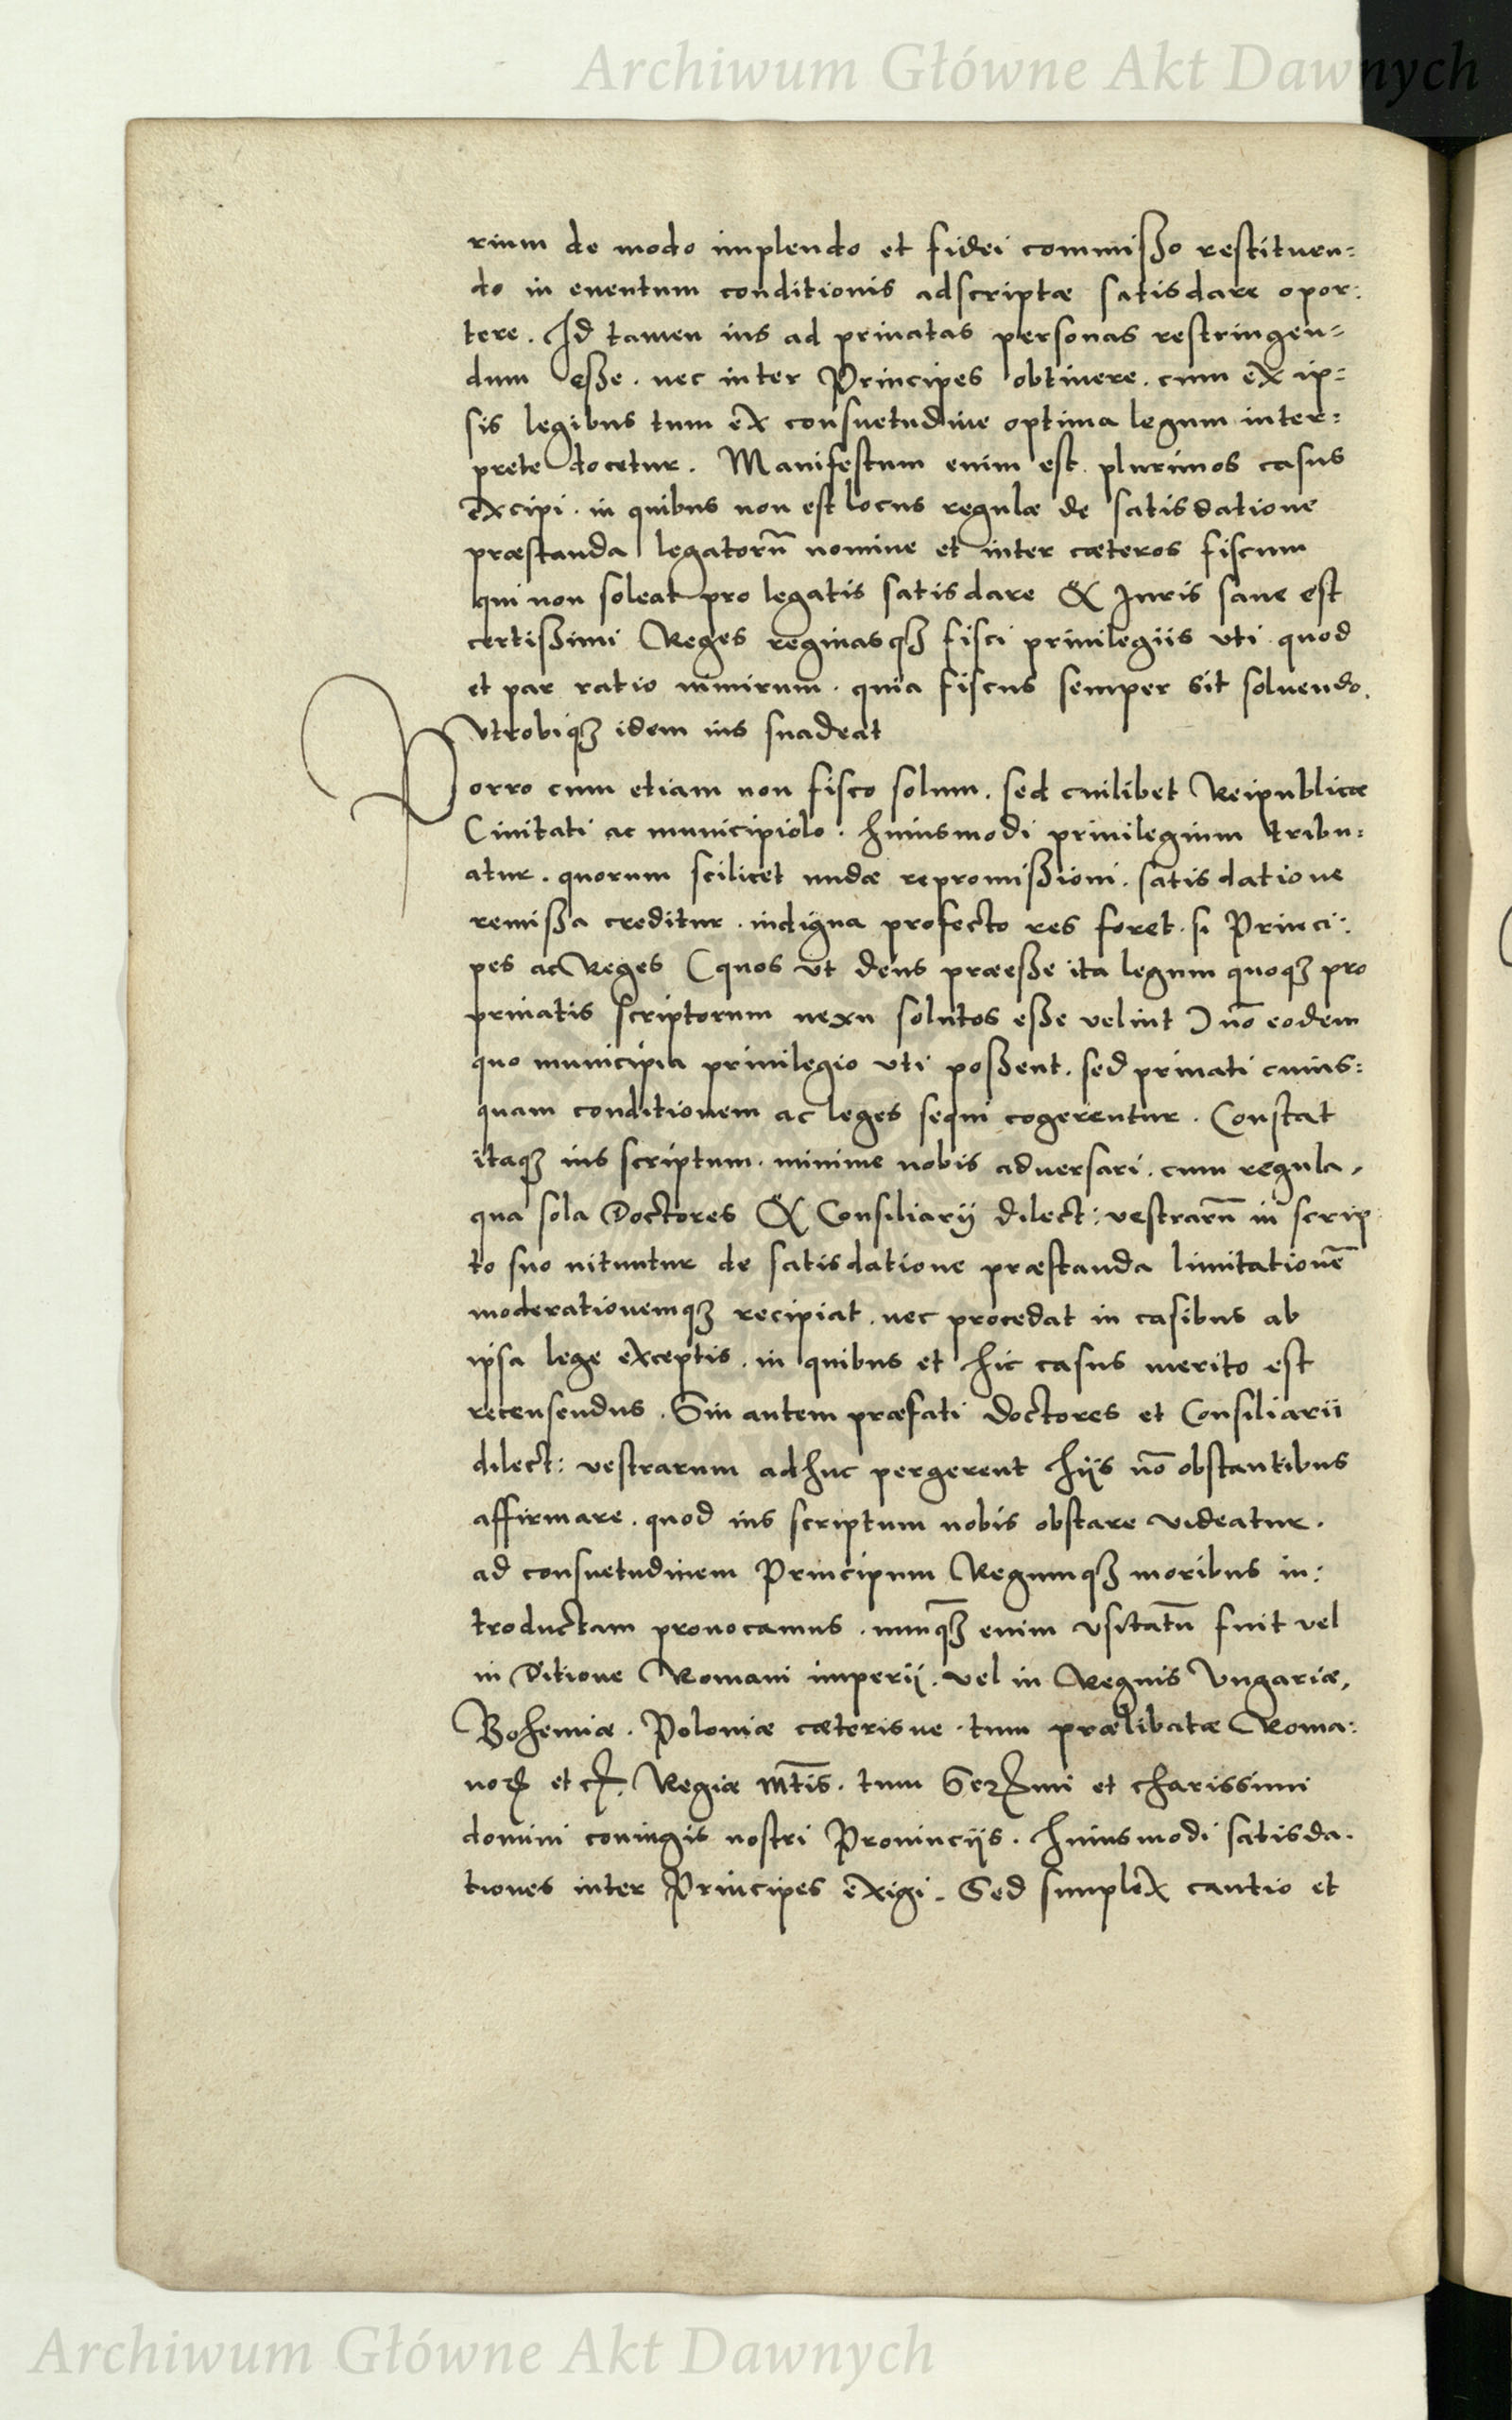 Archiwum Główne Akt Dawnych
rium de modo implendo et fidei commißo restituen=
do in euentum conditionis adscriptæ satisdare opor:
tere. Id tamen ius ad priuatas personas restringen=
dum eße. nec inter Principes obtinere. cum ex ip=
sis legibus tum ex consuetudine optima legum inter=
prete docetur. Manifestum enim est plurimos casus
excipi. in quibus non est locus regulæ de satisdatione
præstanda legatorū nomine et inter cæteros fiscum
qui non soleat pro legatis satisdare & Iuris sane est
certißimi Reges reginasqꝫ fisci priuilegiis vti quod
et par ratio nimirum. quia fiscus semper sit soluendo.
vtrobiqꝫ idem ius suadeat
Porro cum etiam non fisco solum. sed cuilibet Reipublicæ
Ciuitati ac municipiolo. huiusmodi priuilegium tribu=
atur. quorum scilicet nudæ repromißioni. satisdatione
remißa creditur. indigna profecto res foret. si Princi:
pes ac Reges (quos vt deus præeße ita legum quoqꝫ pro
priuatis scriptorum nexu solutos eße velint) nō eodem
quo municipia priuilegio vti poßent. sed priuati cuius:
quam conditionem ac leges sequi cogerentur. Constat
itaqꝫ ius scriptum. minime nobis aduersari. cum regula,
qua sola Doctores & Consiliarij dilect: vestrarū in scrip
to suo nituntur de satisdatione præstanda limitationē
moderationemqꝫ recipiat. nec procedat in casibus ab
ipsa lege exceptis. in quibus et hic casus merito est
recensendus. Sin autem præfati doctores et Consiliarii
dilect: vestrarum adhuc pergerent hijs nō obstantibus
affirmare. quod ius scriptum nobis obstare videatur.
ad consuetudinem Principum Regumqꝫ moribus in:
troductam prouocamus. nunqꝫ enim vsitatū fuit vel
in Ditione Romani imperij. vel in Regnis Vngariæ,
Bohemiæ. Poloniæ cæterisue. tum prælibatæ Roma:
noꝝ et cꝭ. Regiæ Mt̄is. tum Serᵐⁱ et charissimi
domini coniugis nostri Prouincijs. huiusmodi satisda.
tiones inter Principes exigi. Sed simplex cautio et
Archiwum Główne Akt Dawnych